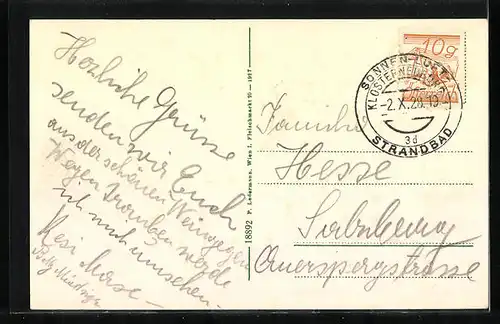 Herzliche Grüsse
senden wir Euch
aus der schönen Weingegend
Wegen Trauben werde
ich mich umsehen.
Resi
18892 P. Ledermann, Wien I. Fleischmarkt 20 – 1917
10g
SONNEN-LUFT-
KLOSTERNEUBURG
-2.X.28.
3d
STRANDBAD
Familie
Hesse
Salzburg
Auerspergstrasse